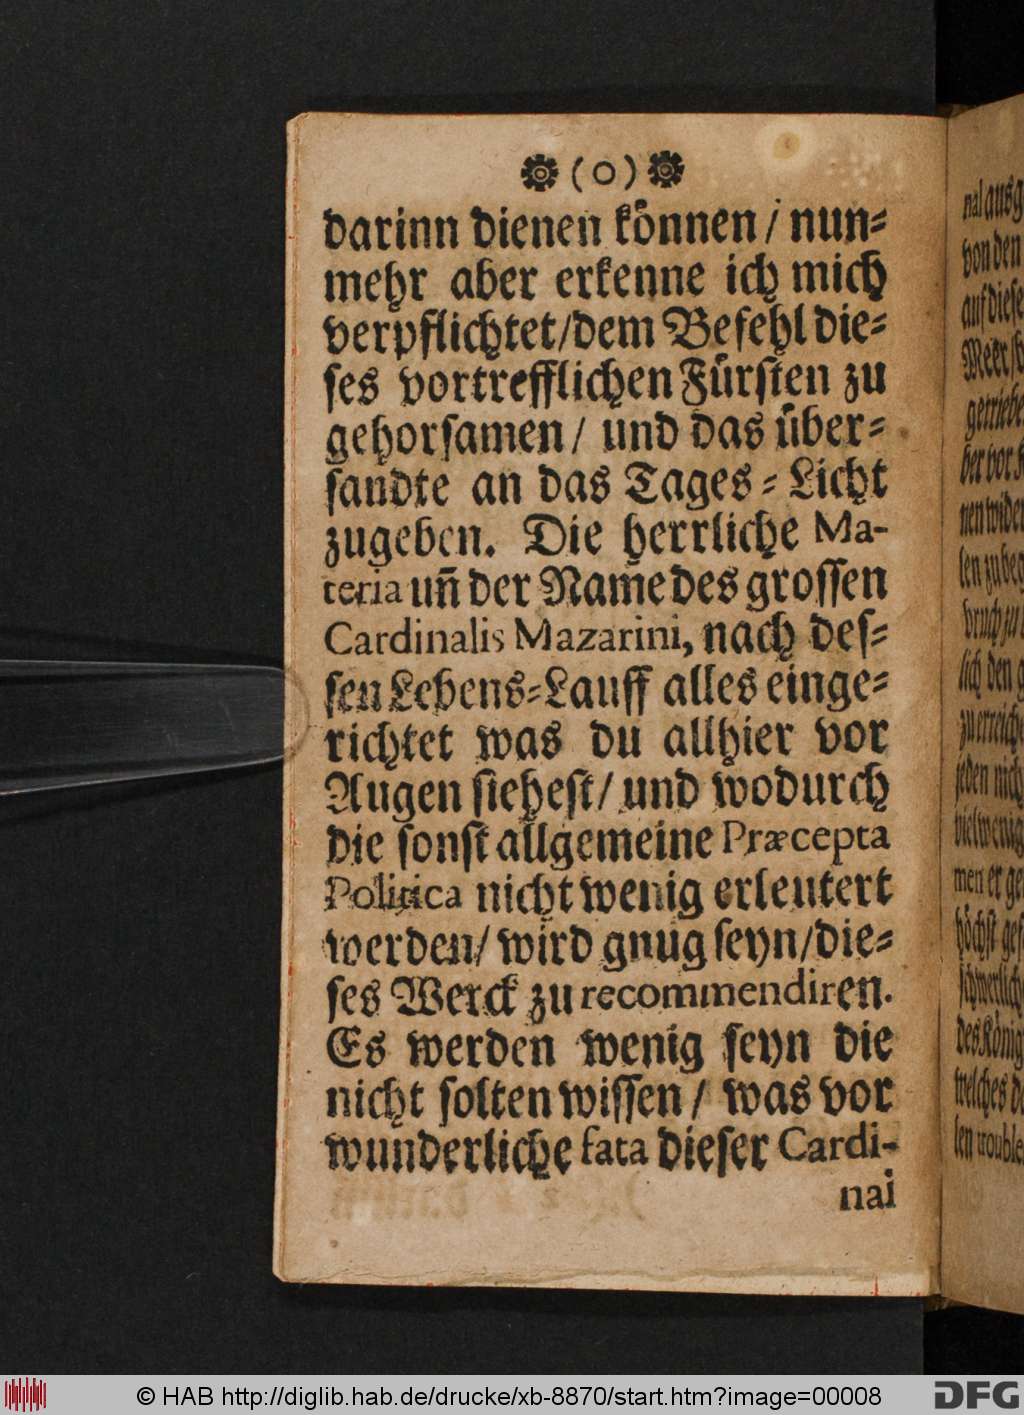 ❁(o)❁
darinn dienen können / nun⸗
mehr aber erkenne ich mich
verpflichtet/dem Befehl die⸗
ses vortrefflichen Fürsten zu
gehorsamen / und das über⸗
sandte an das Tages⸗Licht
zugeben. Die herrliche Ma-
teria uñ der Name des grossen
Cardinalis Mazarini, nach des⸗
sen Lebens⸗Lauff alles einge⸗
richtet was du allhier vor
Augen siehest/ und wodurch
die sonst allgemeine Præcepta
Politica nicht wenig erleutert
werden/ wird gnug seyn/die⸗
ses Werck zu recommendiren.
Es werden wenig seyn die
nicht solten wissen / was vor
wunderliche fata dieser Cardi-
nal
nal ausg
von den
auf diese
Meer
getriebe
ber vor
nen wider
len zu beg
bruch zu
lich den g
zu erreiche
jeden nich
viel wenig
men er ge
höchst gef
schwerlich
des König
welches de
len trouble
© HAB http://diglib.hab.de/drucke/xb-8870/start.htm?image=00008
DFG